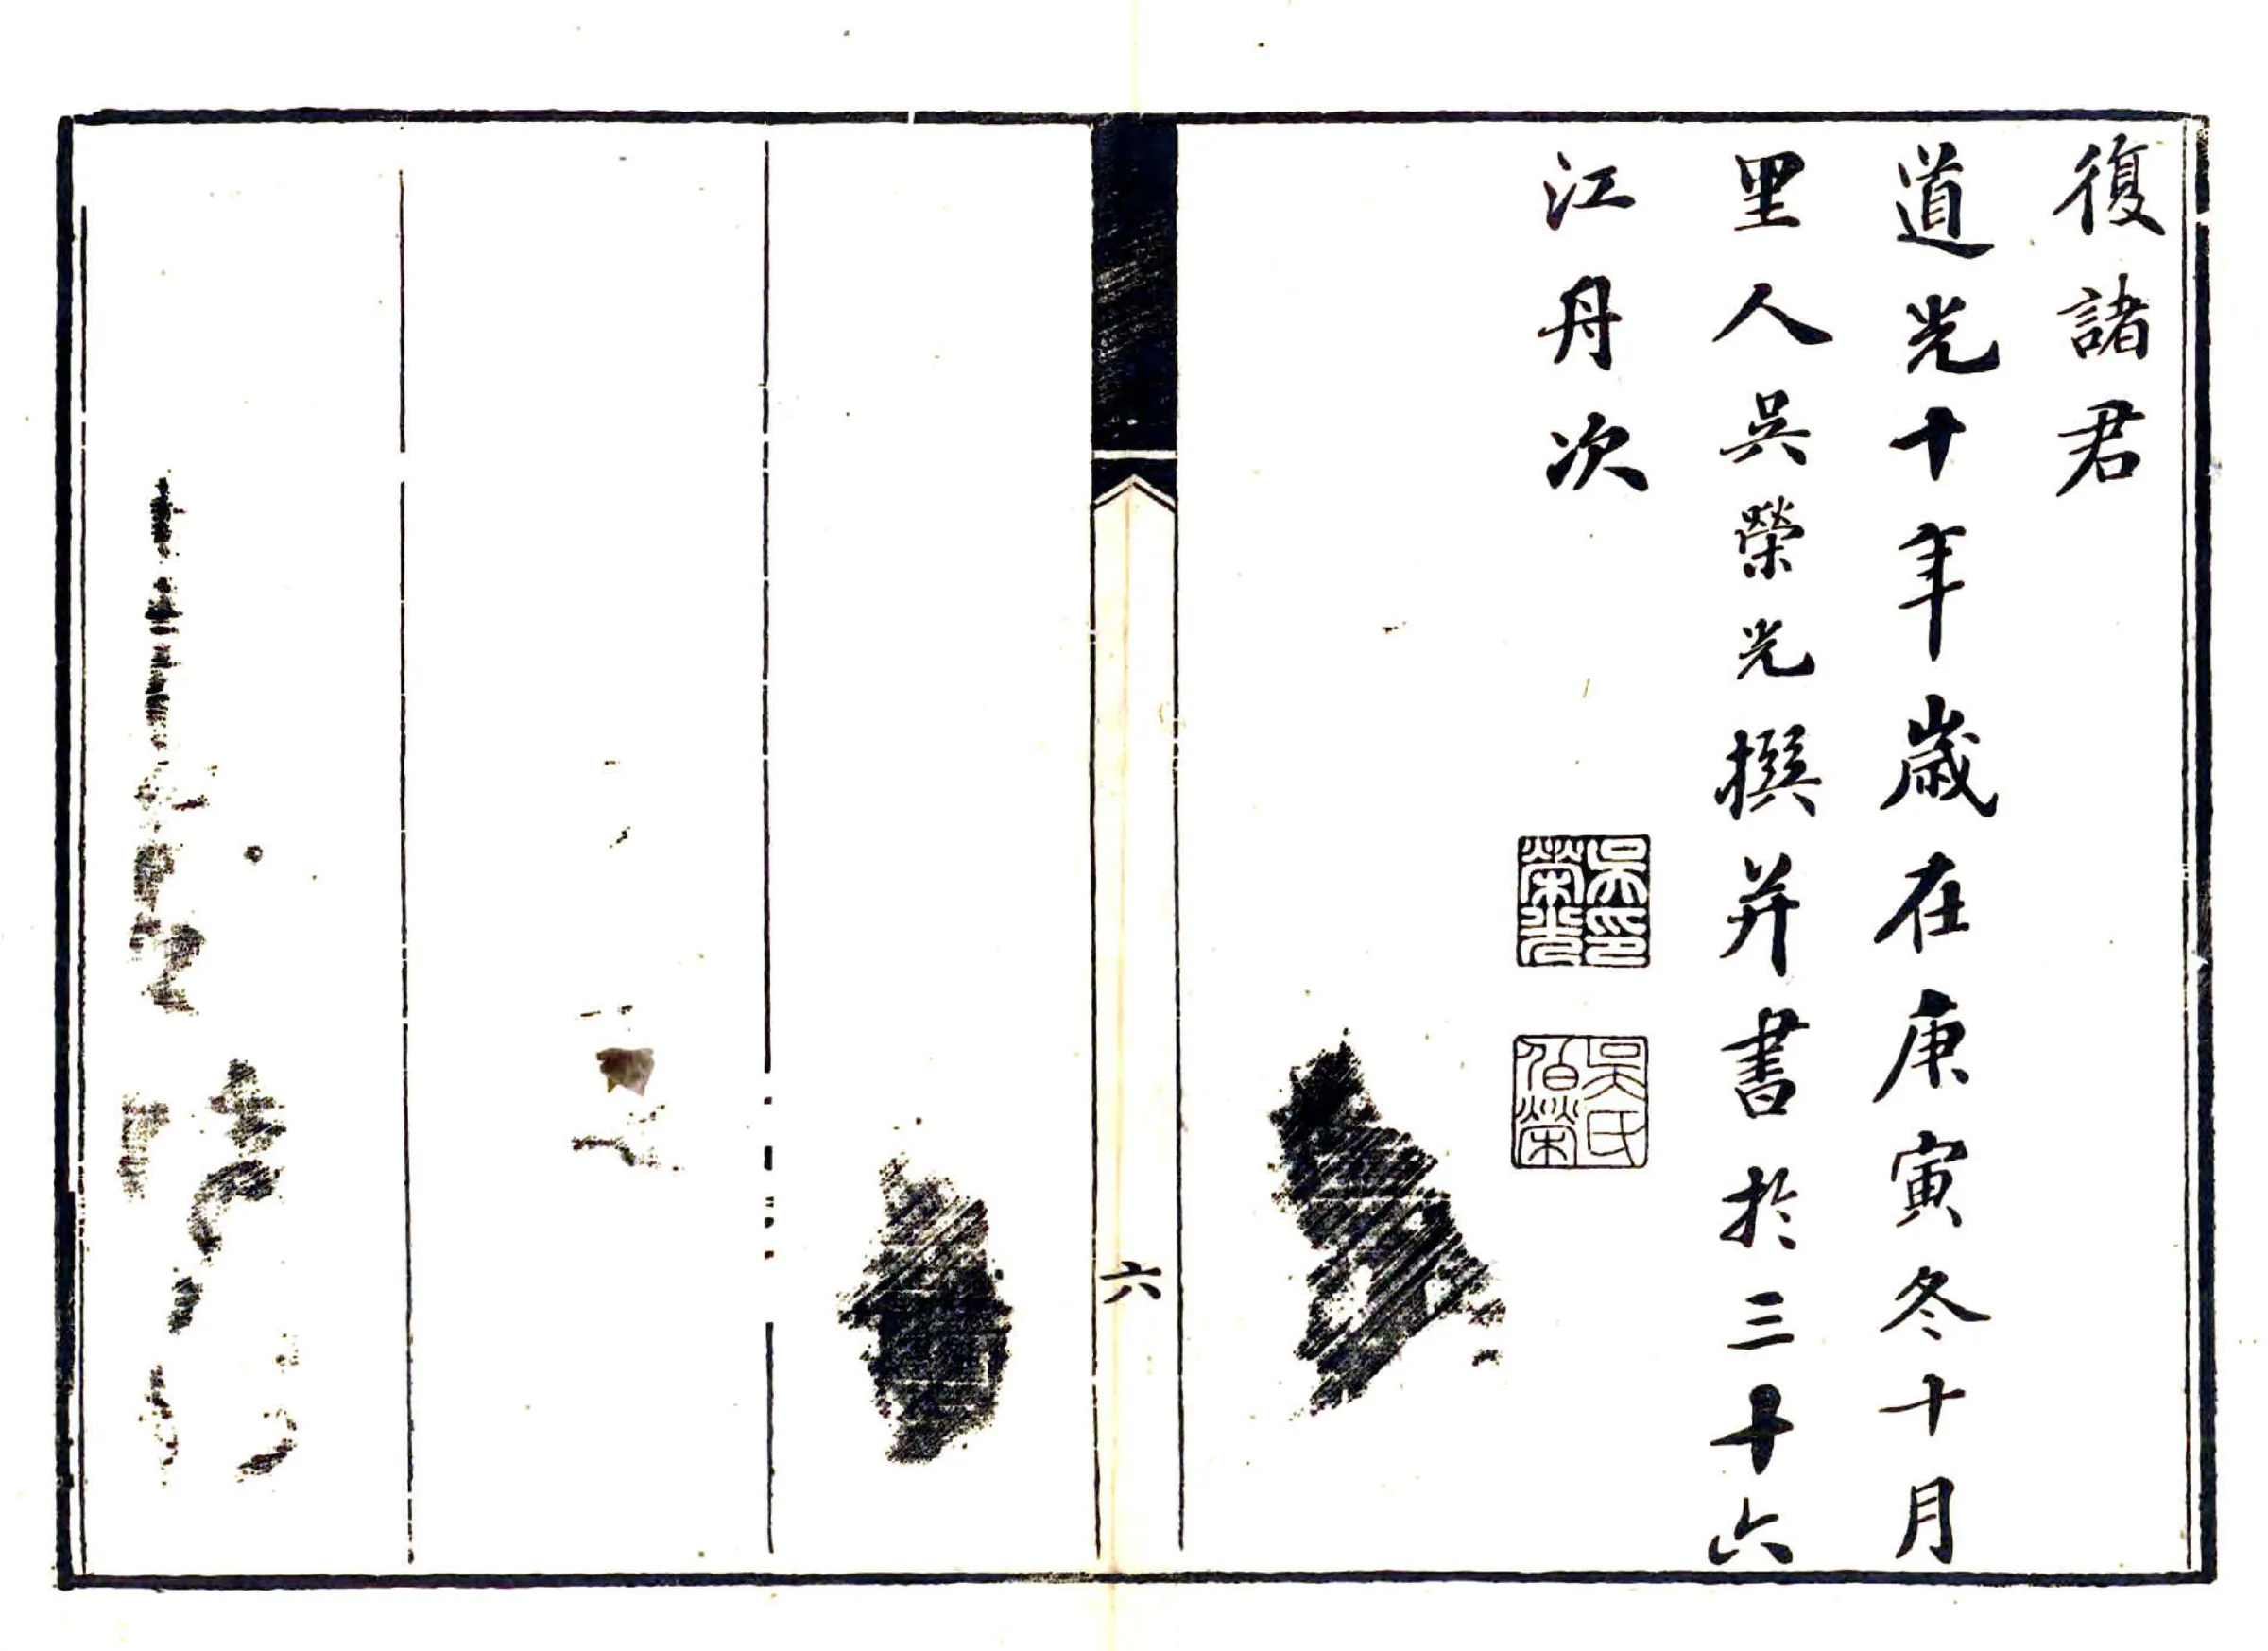 復諸君
道光十年歲在庚寅冬十月
里人吳榮光撰并書於三十六
江舟次
吳榮光印
吳氏伯榮
六